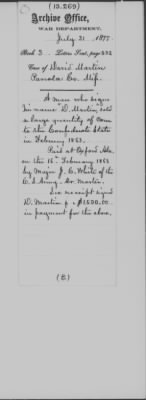 (13.269)
Archive Office,
WAR DEPARTMENT,
July 21, 1877.
Book 3 Letters Sent, page 532
Case of David Martin
Panola Co. Miss.
A man who signs
his name "D. Martin," sold
a large quantity of Corn
to the Confederate States
in February 1863.
Paid at Oxford Ala.
on the 15th February 1863
by Major J. C. White of the
C. S. Army. Mr. Martin.
See receipt signed
D. Martin for $1500.00
in payment for the above.
(E.)